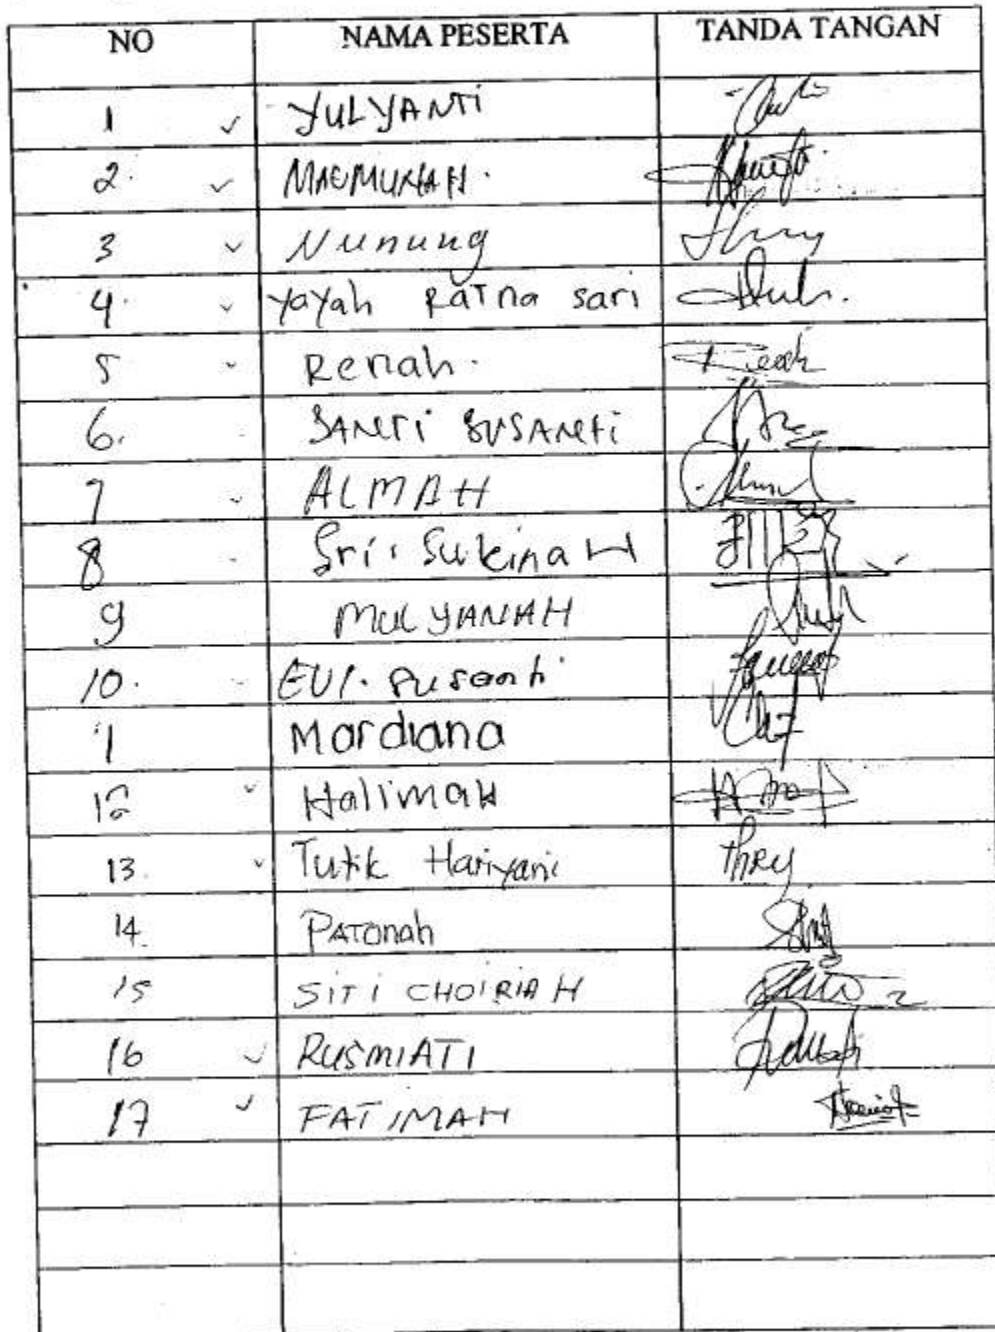 NO NAMA PESERTA TANDA TANGAN
1 YULYANTI
2. MAEMUNAH.
3 Nunung
4. Yayah Ratna sari
5 Renah.
6. SANTI SUSANTI
7 ALMAH
8 Sri. SukinaH
9 MULYANAH
10. EVI. Susanti
11 Mardiana
12 HalimaH
13. Tutik Hariyani
14. PATonah
15 SITI CHOIRIAH
16 RUSMIATI
17 FATIMAH